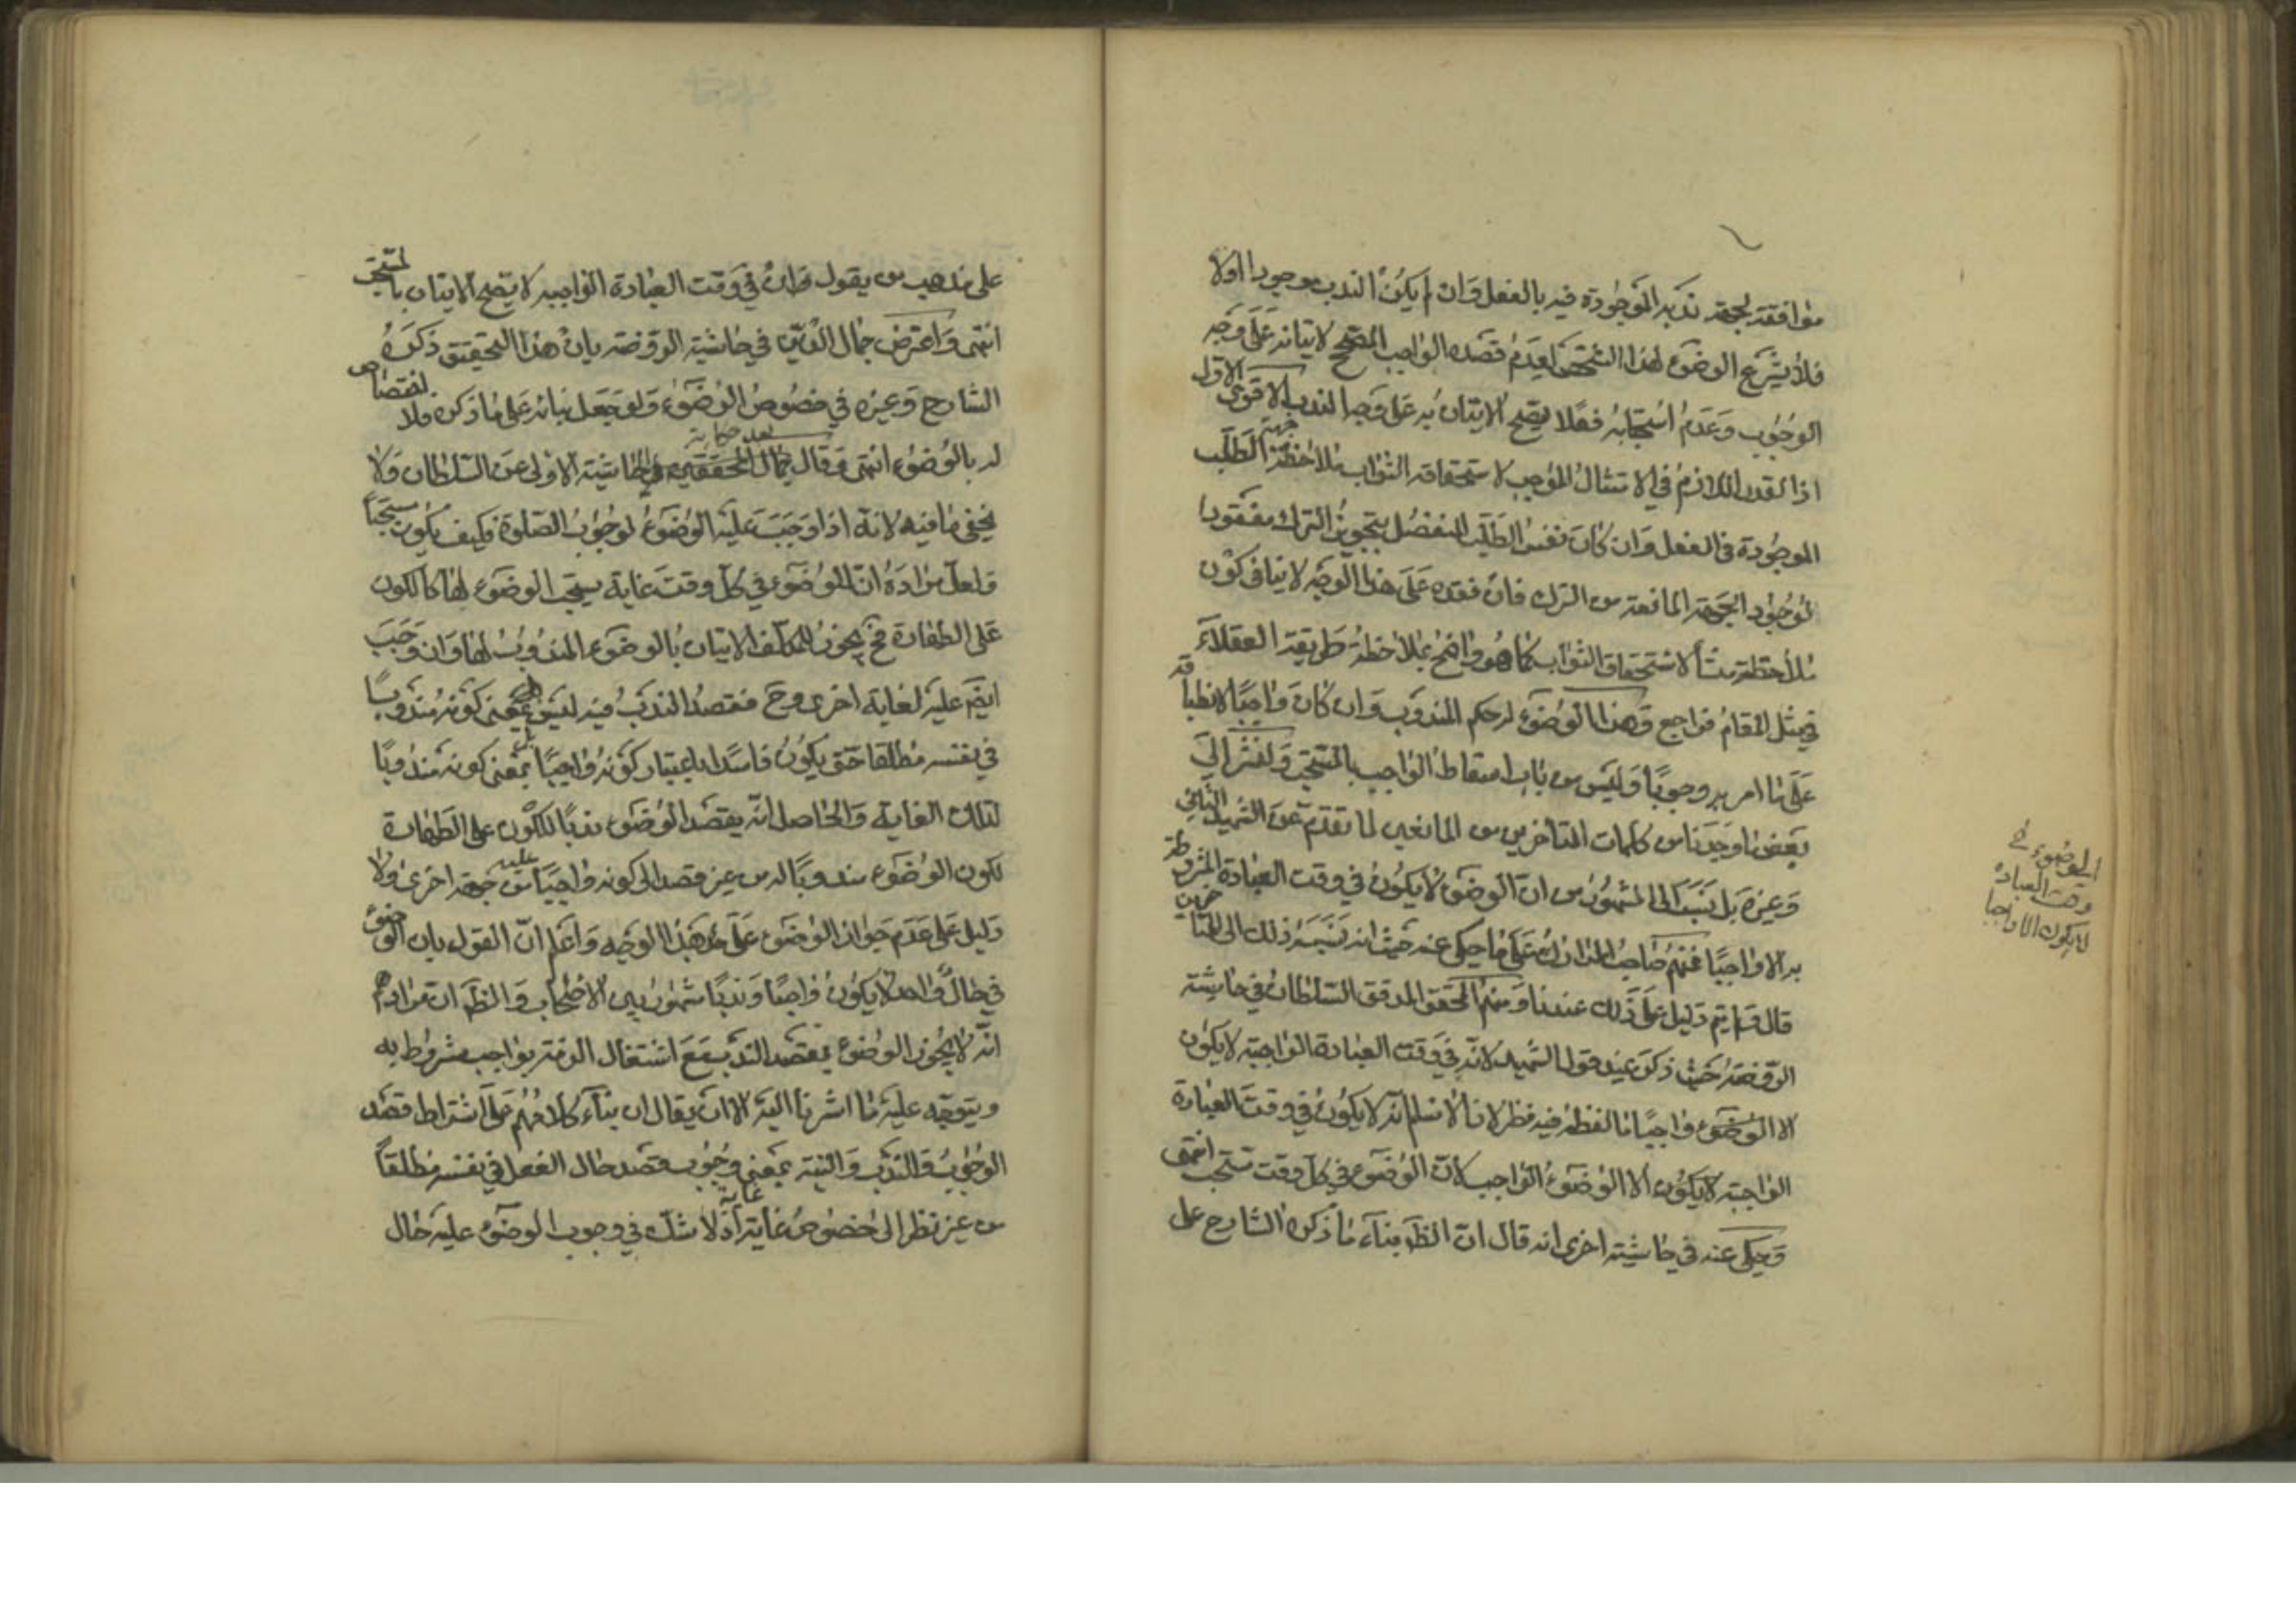 موافقته لجهة ندبه الموجودة فيه بالفعل وان لم يكن الندب موجودا اولا
فلا يشرع الوضوء لهذا الشخص لعدم قصده الواجب المصحح لاتيانه على وجه
الوجوب وعدم استحبابه فعلا يصح الاتيان به على وجه الندب الاقوى الاول
اذا لقدر اللازم في الامتثال الموجب لاستحقاقه الثواب ملاحظة جهة الطلب
الموجودة في الفعل وان كان نفس الطلب المنفصل بتجويز الترك مفقودا
لوجود الجهة المانعة من الترك فان فقده على هذا الوجه لا ينافى كون
ملاحظته منشأ لاستحقاق الثواب كما هو واضح بملاحظة طريقة العقلاء
في مثل المقام فراجع وهذا الوضوء له حكم المندوب وان كان واجبا لانطباقه
على ما امر به وجوبا وليس من باب اسقاط الواجب بالمستحب ولنشر الى
بعض ما وجدنا من كلمات المتاخرين من المانعين لما تقدم عن الشهيد الثاني
وغيره بل نسب الى المشهور من ان الوضوء لا يكون في وقت العبادة المشروطة
به الا واجبا فمنهم صاحب المدارك على ما حكى عنه حيث انه نسبه ذلك الى المتاخرين
قال ولم يتم دليل على ذلك عندنا ومنهم المحقق المدقق السلطان في حاشية
الروضة حيث ذكر عند قول الشهيد لانه في وقت العبادة الواجبة لا يكون
الا الوضوء واجبا ما لفظه فيه نظر لانا لا نسلم انه لا يكون في وقت العبادة
الواجبة لا يكون الا الوضوء الواجب لان الوضوء في كل وقت مستحب انتهى
وحكى عنه في حاشية اخرى انه قال ان الظ بناء ما ذكره الشارح على
الوضوء في
وقت العبادة
لا يكون الا واجبا
على مذهب من يقول وان في وقت العبادة الواجبة لا يصح الاتيان بالمستحب
انتهى واعترض جمال الدين في حاشية الروضة بان هذا التحقيق ذكره
الشارح وغيره في خصوص الوضوء ولو جعل بنائه على ما ذكره فلا اختصاص
له بالوضوء انتهى وقال جمال المحققين بعد حكاية الحاشية الاولى عن السلطان ولا
يخفى ما فيه لانه اذا وجب عليه الوضوء لوجوب الصلوة فكيف يكون مستحبا
ولعل مراده ان للوضوء في كل وقت غاية يستحب الوضوء لها كالكون
على الطهارة فح يجوز للمكلف الاتيان بالوضوء المندوب لها وان وجب
ايضا عليه لغاية اخرى وح فقصد الندب فيه ليس بمعنى كونه مندوبا
في نفسه مطلقا حتى يكون فاسدا باعتبار كونه واجبا بل بمعنى كونه مندوبا
لتلك الغاية والحاصل انه يقصد الوضوء ندبا للكون على الطهارة
لكون الوضوء مندوبا له من غير قصد الى كونه واجبا عليه من جهة اخرى ولا
دليل على عدم جواز الوضوء على هذا الوجه واعلم ان القول بان الوضوء
في حال واحد لا يكون واجبا وندبا مشهور بين الاصحاب والظ ان مرادهم
انه لا يجوز الوضوء بقصد الندب مع اشتغال الذمة بواجب مشروط به
ويتوجه عليه ما اشرنا اليه الا ان يقال ان بناء كلامهم على اشتراط قصد
الوجوب والندب والنية بمعنى وجوب قصد حال الفعل في نفسه مطلقا
من غير نظر الى خصوص غاية غاية اذ لا شك في وجوب الوضوء عليه حال